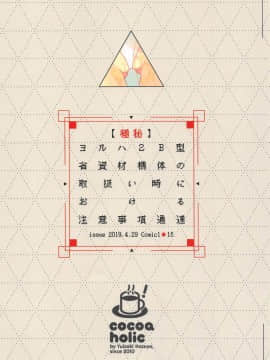 【極秘】
ヨルハ2B型
省資材構体の
取扱い時に
おける
注意事項通達
issue 2019.4.29 Comic1★15
cocoa
holic
by Yuizaki Kazuya,
since 2010